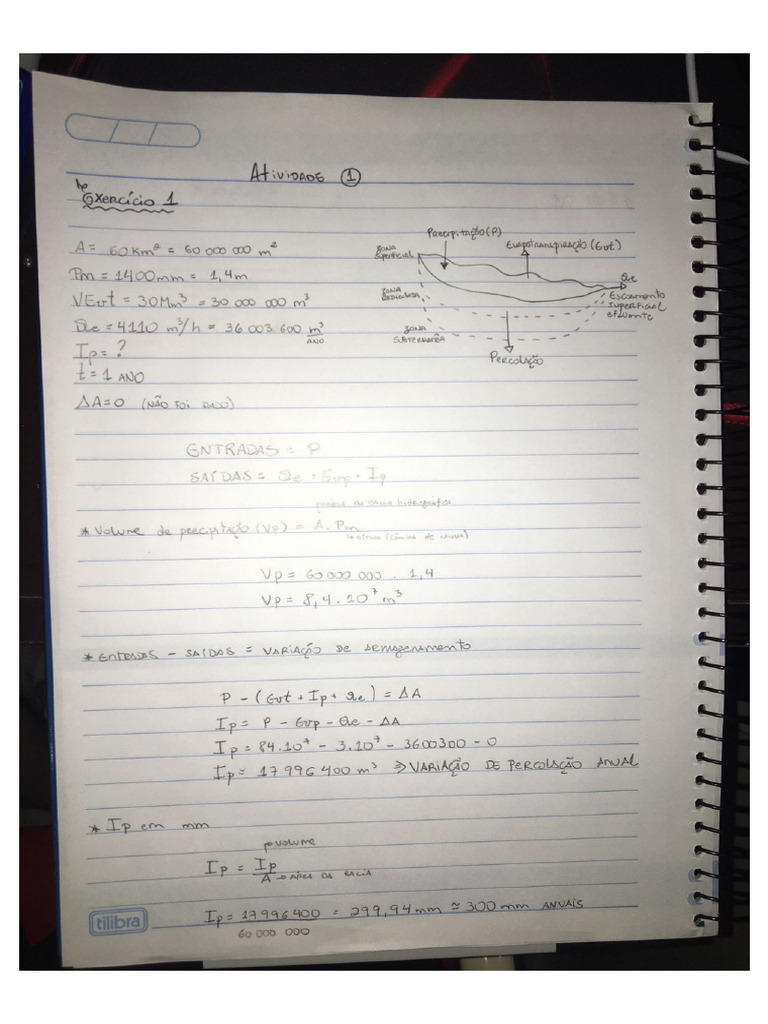 Atividade 1
Exercício 1
A = 60 Km² = 60 000 000 m²
Pm = 1400mm = 1,4m
VEvt = 30Mm³ = 30 000 000 m³
Qe = 4110 m³/h = 36 003.600 m³/ANO
Ip = ?
t = 1 ANO
ΔA = 0 (NÃO FOI DADO)
Precipitação (P)
Evapotranspiração (Evt)
ZONA SUPERFICIAL
Qe
Escoamento superficial efluente
ZONA RADICULAR
ZONA SUBTERRÂNEA
Percolação
ENTRADAS = P
SAÍDAS = Qe + Evp + Ip
da bacia hidrográfica
* Volume de precipitação (Vp) = A . Pm
altura (lâmina de chuva)
Vp = 60 000 000 . 1,4
Vp = 8,4 . 10⁷ m³
* ENTRADAS - SAÍDAS = VARIAÇÃO DE ARMAZENAMENTO
P - (Evt + Ip + Qe) = ΔA
Ip = P - Evp - Qe - ΔA
Ip = 84.10⁷ - 3.10⁷ - 3600300 - 0
Ip = 17 996 400 m³ ⇒ VARIAÇÃO DE PERCOLAÇÃO ANUAL
* Ip em mm
volume
Ip = Ip/A → ÁREA DA BACIA
Ip = 17996400 = 299,94mm ≃ 300mm ANUAIS
60 000 000
tilibra